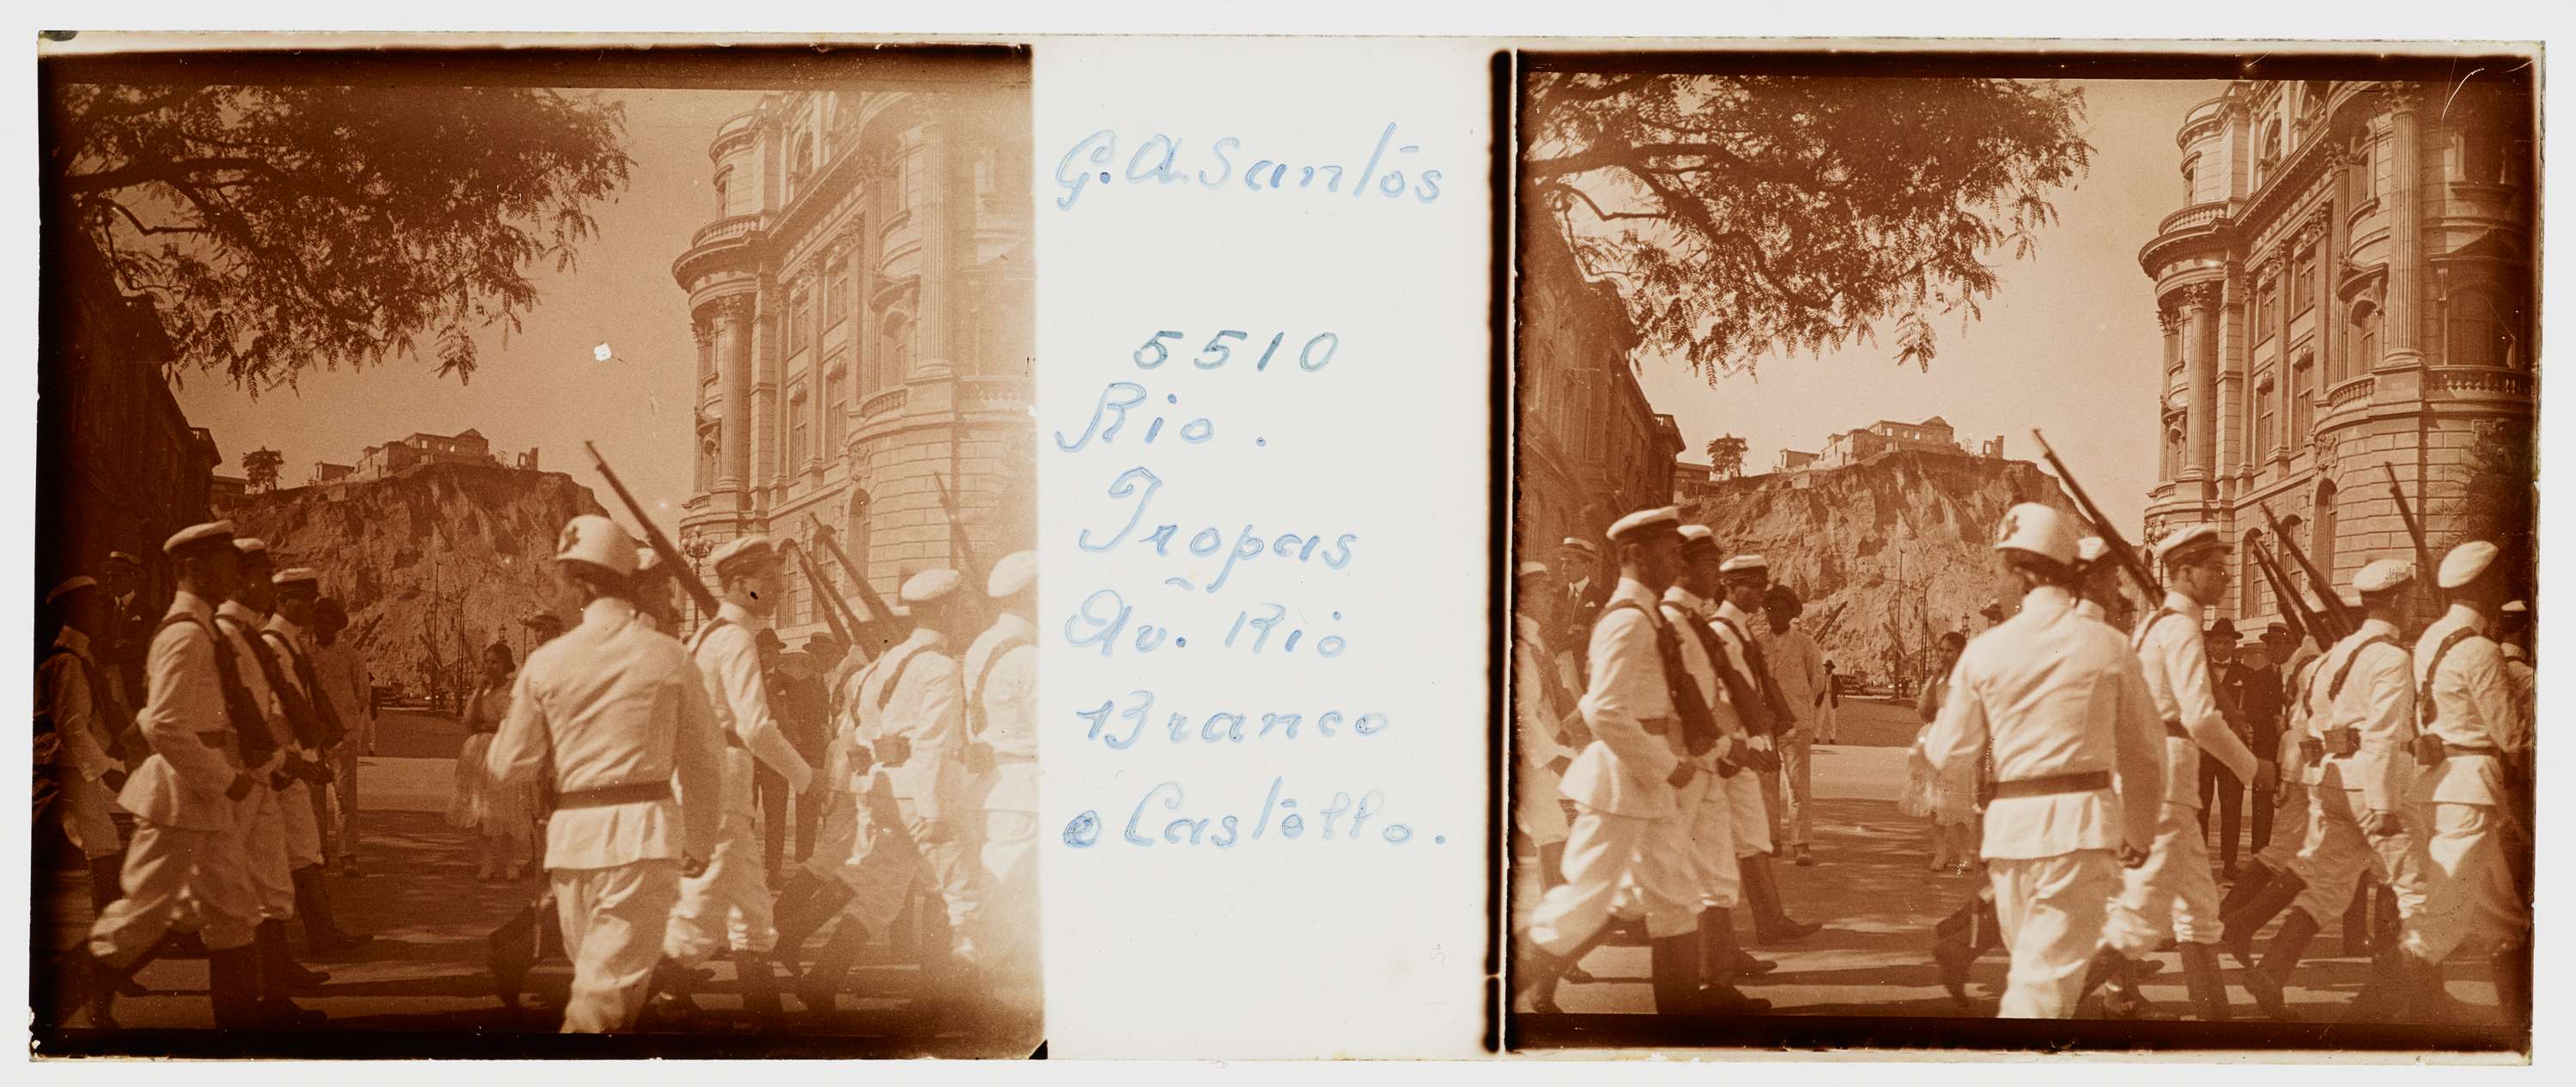 G. A. Santos
5510
Rio.
Tropas
Av. Rio
Branco
e Castello.